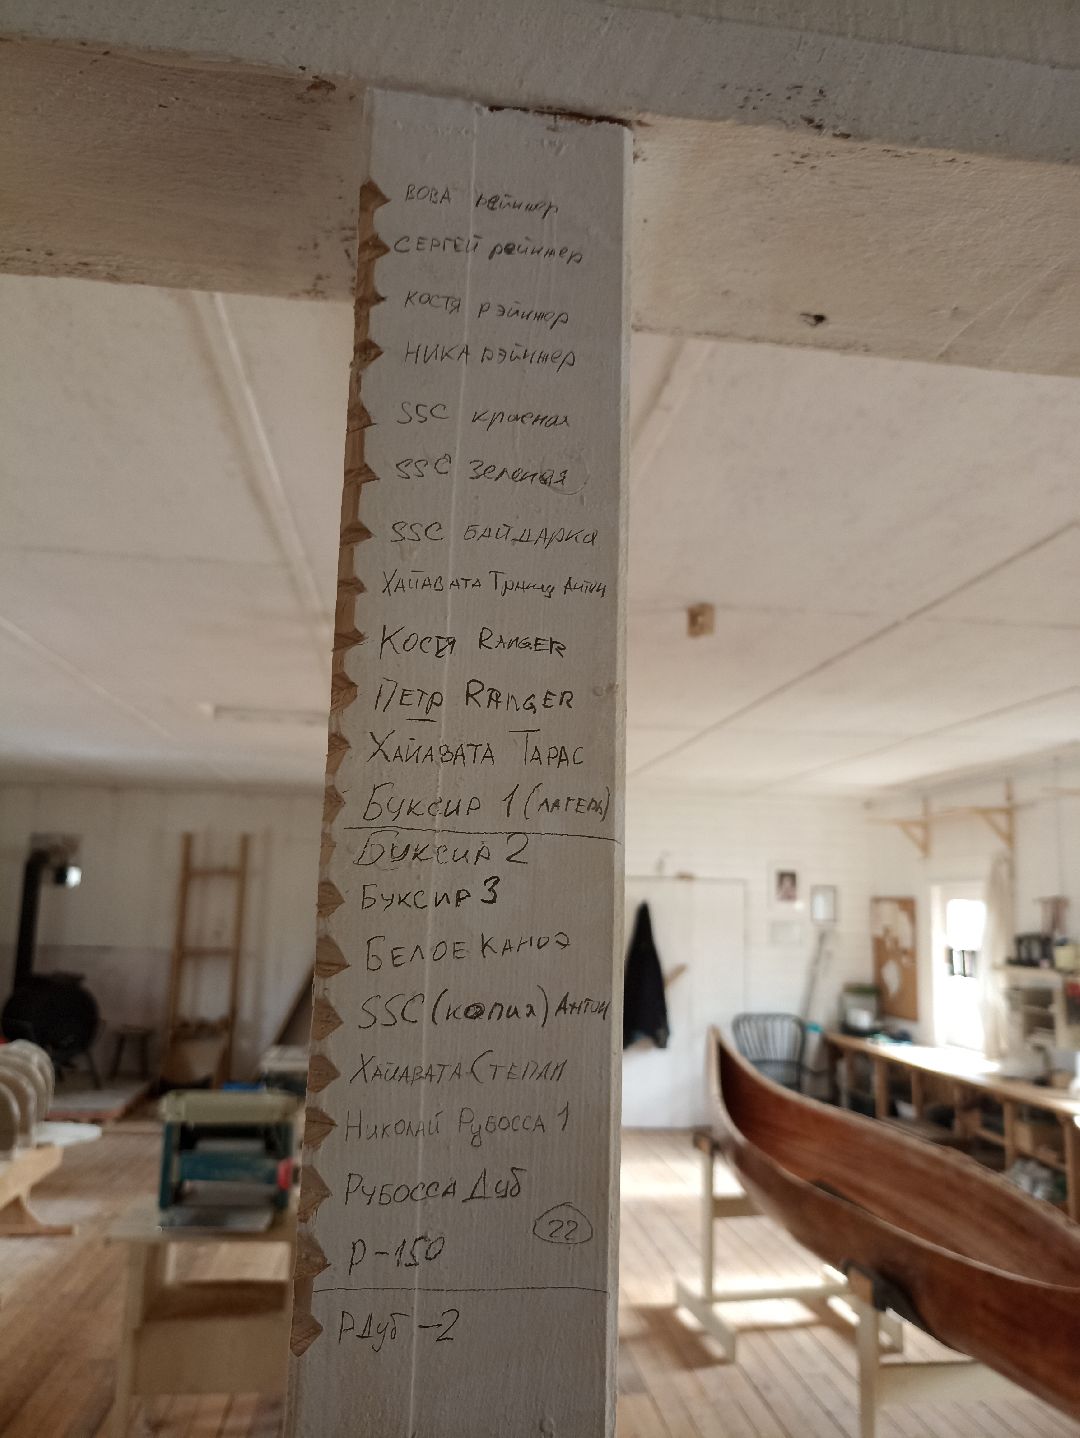 ВОВА рейнжер
СЕРГЕЙ рейнжер
КОСТЯ рэйнжер
НИКА рэйнжер
SSC красная
SSC зеленая
SSC БАЙДАРКА
ХАЙАВАТА Антон
КОСТЯ RANGER
ПЕТР RANGER
ХАЙАВАТА ТАРАС
БУКСИР 1 (ЛАГЕРЬ)
БУКСИР 2
БУКСИР 3
БЕЛОЕ КАНОЭ
SSC (копия) АНТОН
ХАЙАВАТА СТЕПАН
НИКОЛАЙ РУБОССА 1
РУБОССА Дуб
22
Р-150
РДуб -2